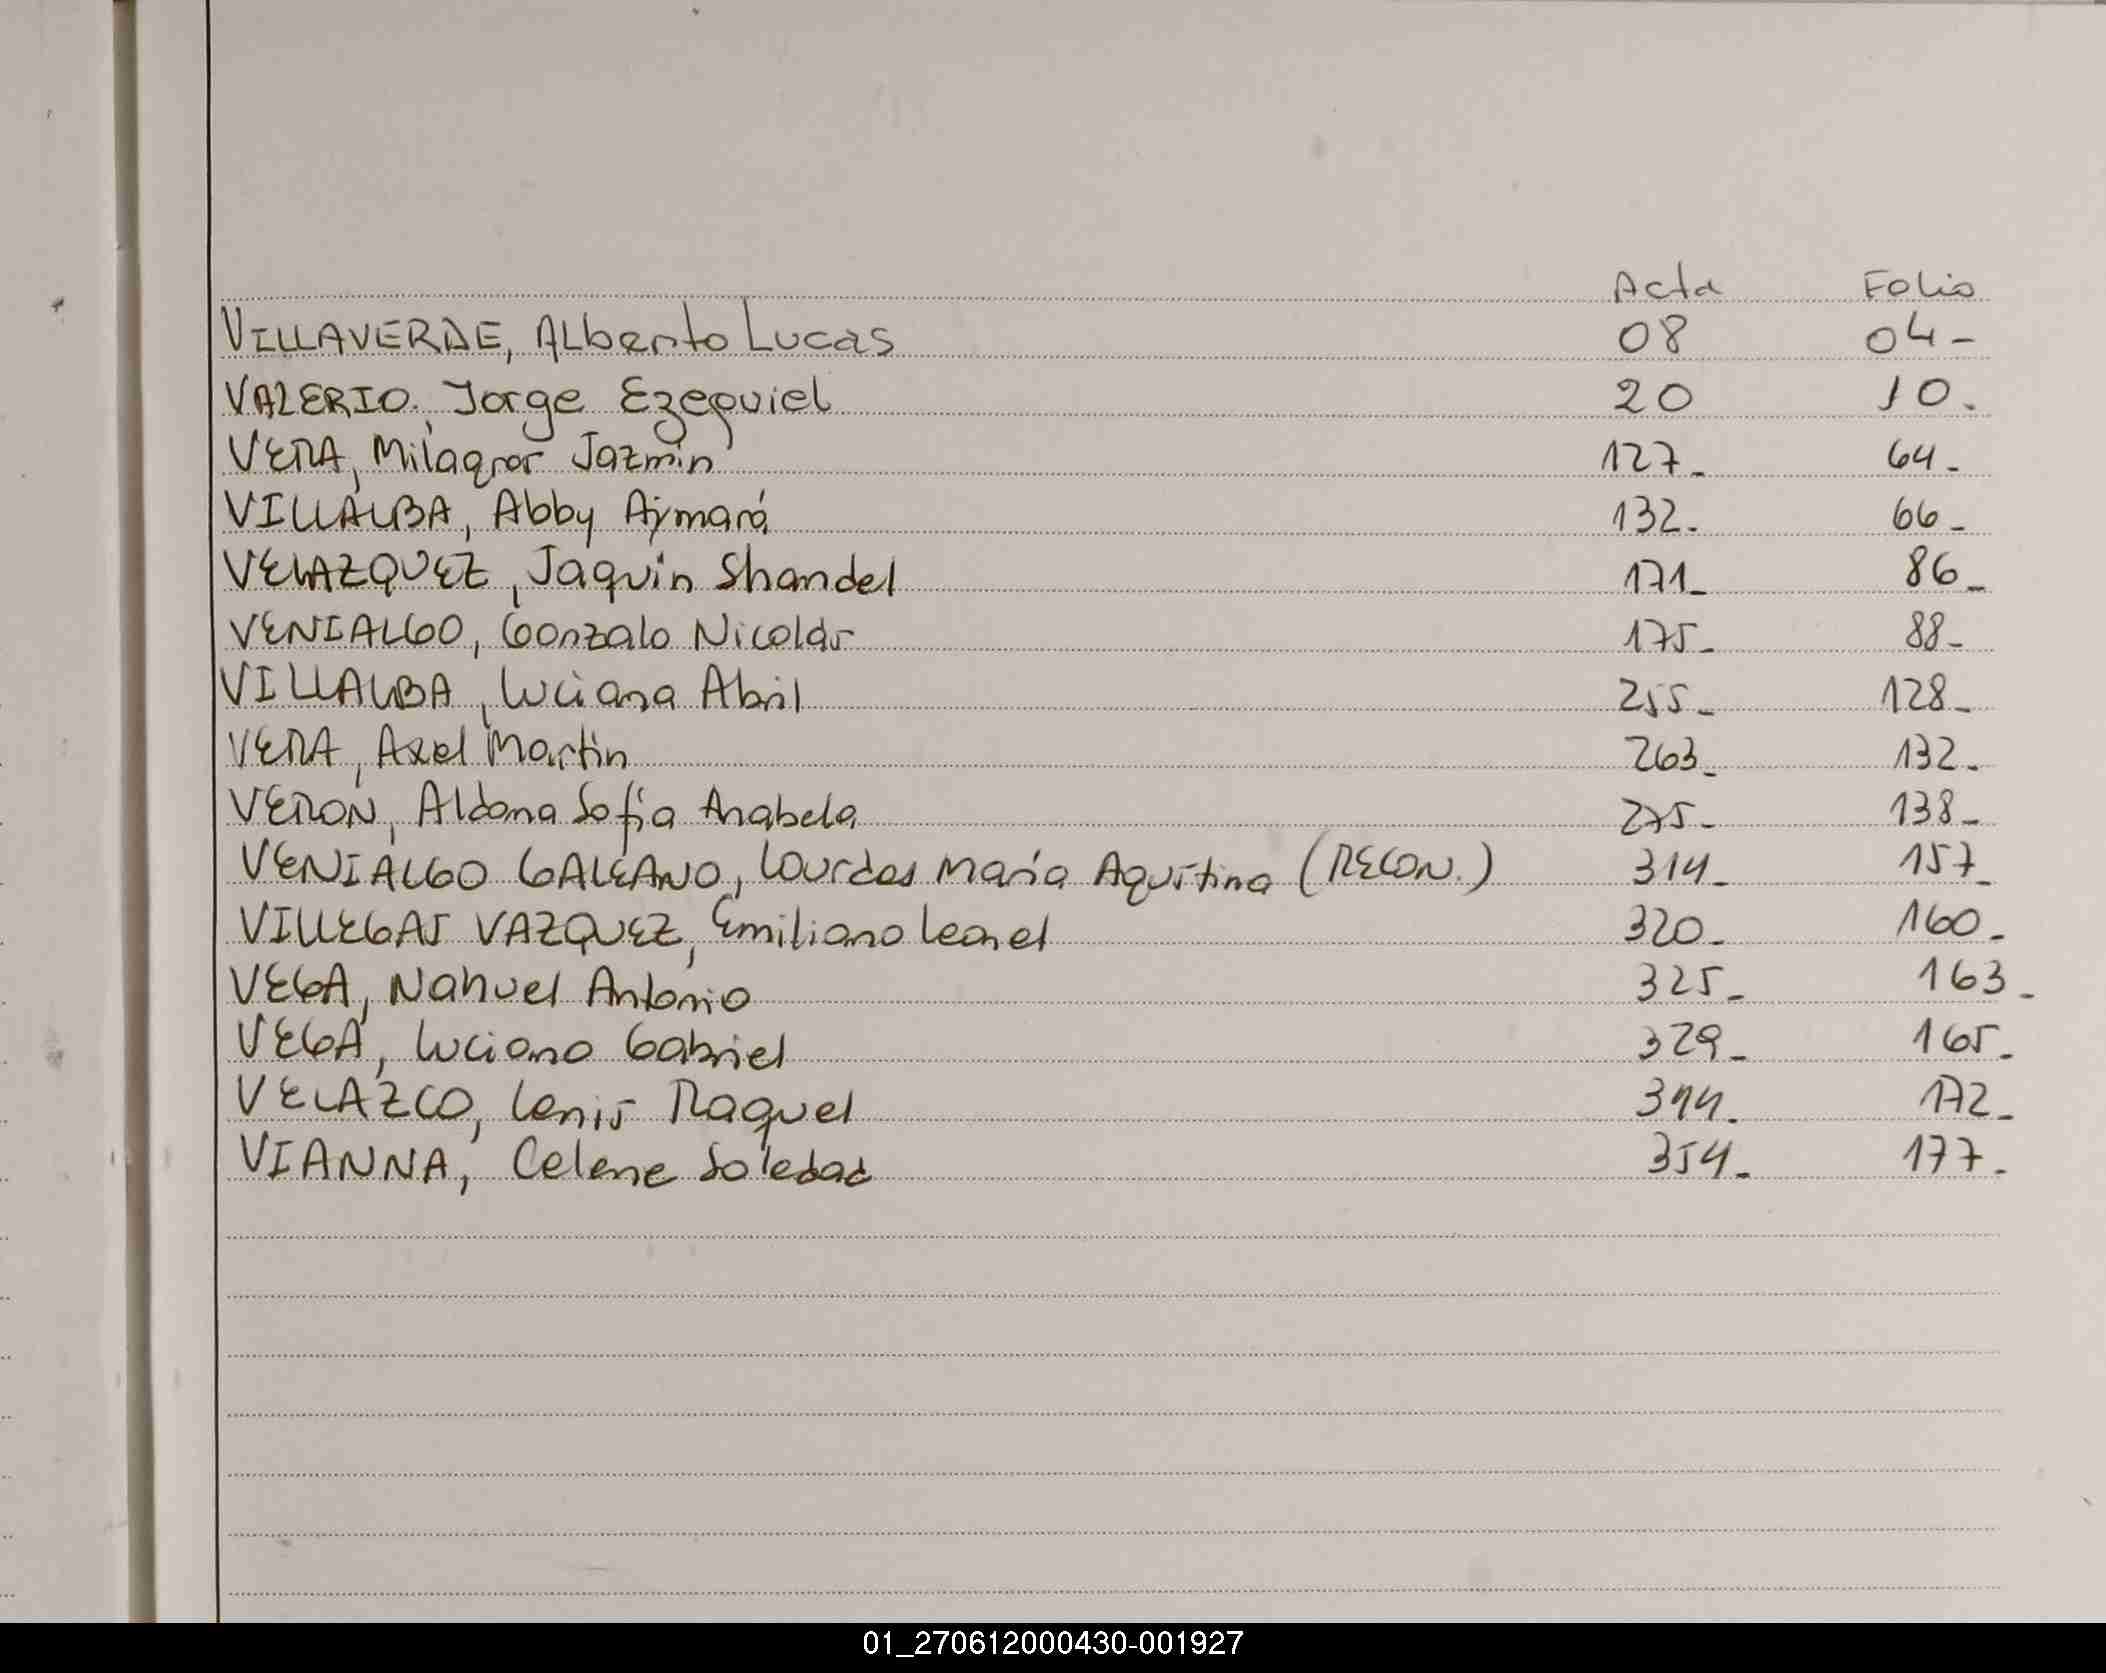 Acta Folio
VILLAVERDE, Alberto Lucas 08 04-
VALERIO, Jorge Ezequiel 20 10.
VERA, Milagros Jazmin 127- 64-
VILLALBA, Abby Aymará 132- 66-
VELAZQUEZ, Jaquin Shandel 171- 86-
VENIALGO, Gonzalo Nicolás 175- 88-
VILLALBA, Luciana Abril 255- 128-
VERA, Axel Martin 263- 132-
VERON, Aldana Sofía Anabela 275- 138-
VENIALGO GALEANO, Lourdes María Agustina (RECON.) 314- 157-
VILLEGAS VAZQUEZ, Emiliano Leonel 320- 160-
VEGA, Nahuel Antonio 325- 163-
VEGA, Luciano Gabriel 329- 165-
VELAZCO, Lenis Raquel 344- 172-
VIANNA, Celene Soledad 354- 177-
01_270612000430-001927